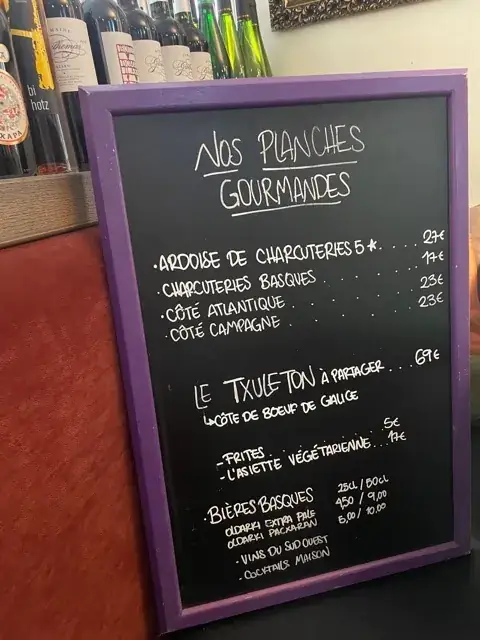 bi
hotz
NOS PLANCHES
GOURMANDES
·ARDOISE DE CHARCUTERIES 5*.... 27€
·CHARCUTERIES BASQUES . . . . 17€
·CÔTÉ ATLANTIQUE . . . . 23€
·CÔTÉ CAMPAGNE . . . . 23€
LE TXULETON À PARTAGER... 69€
↳CÔTE DE BOEUF DE GALICE
-FRITES........ 5€
-L'ASIETTE VÉGÉTARIENNE... 17€
·BIÈRES BASQUES 25CL/50CL
OLDARKI EXTRA PALE 4,50 / 9,00
OLDARKI PACKARAN 5,00/ 10.00
·VINS DU SUD OUEST
·COCKTAILS MAISON